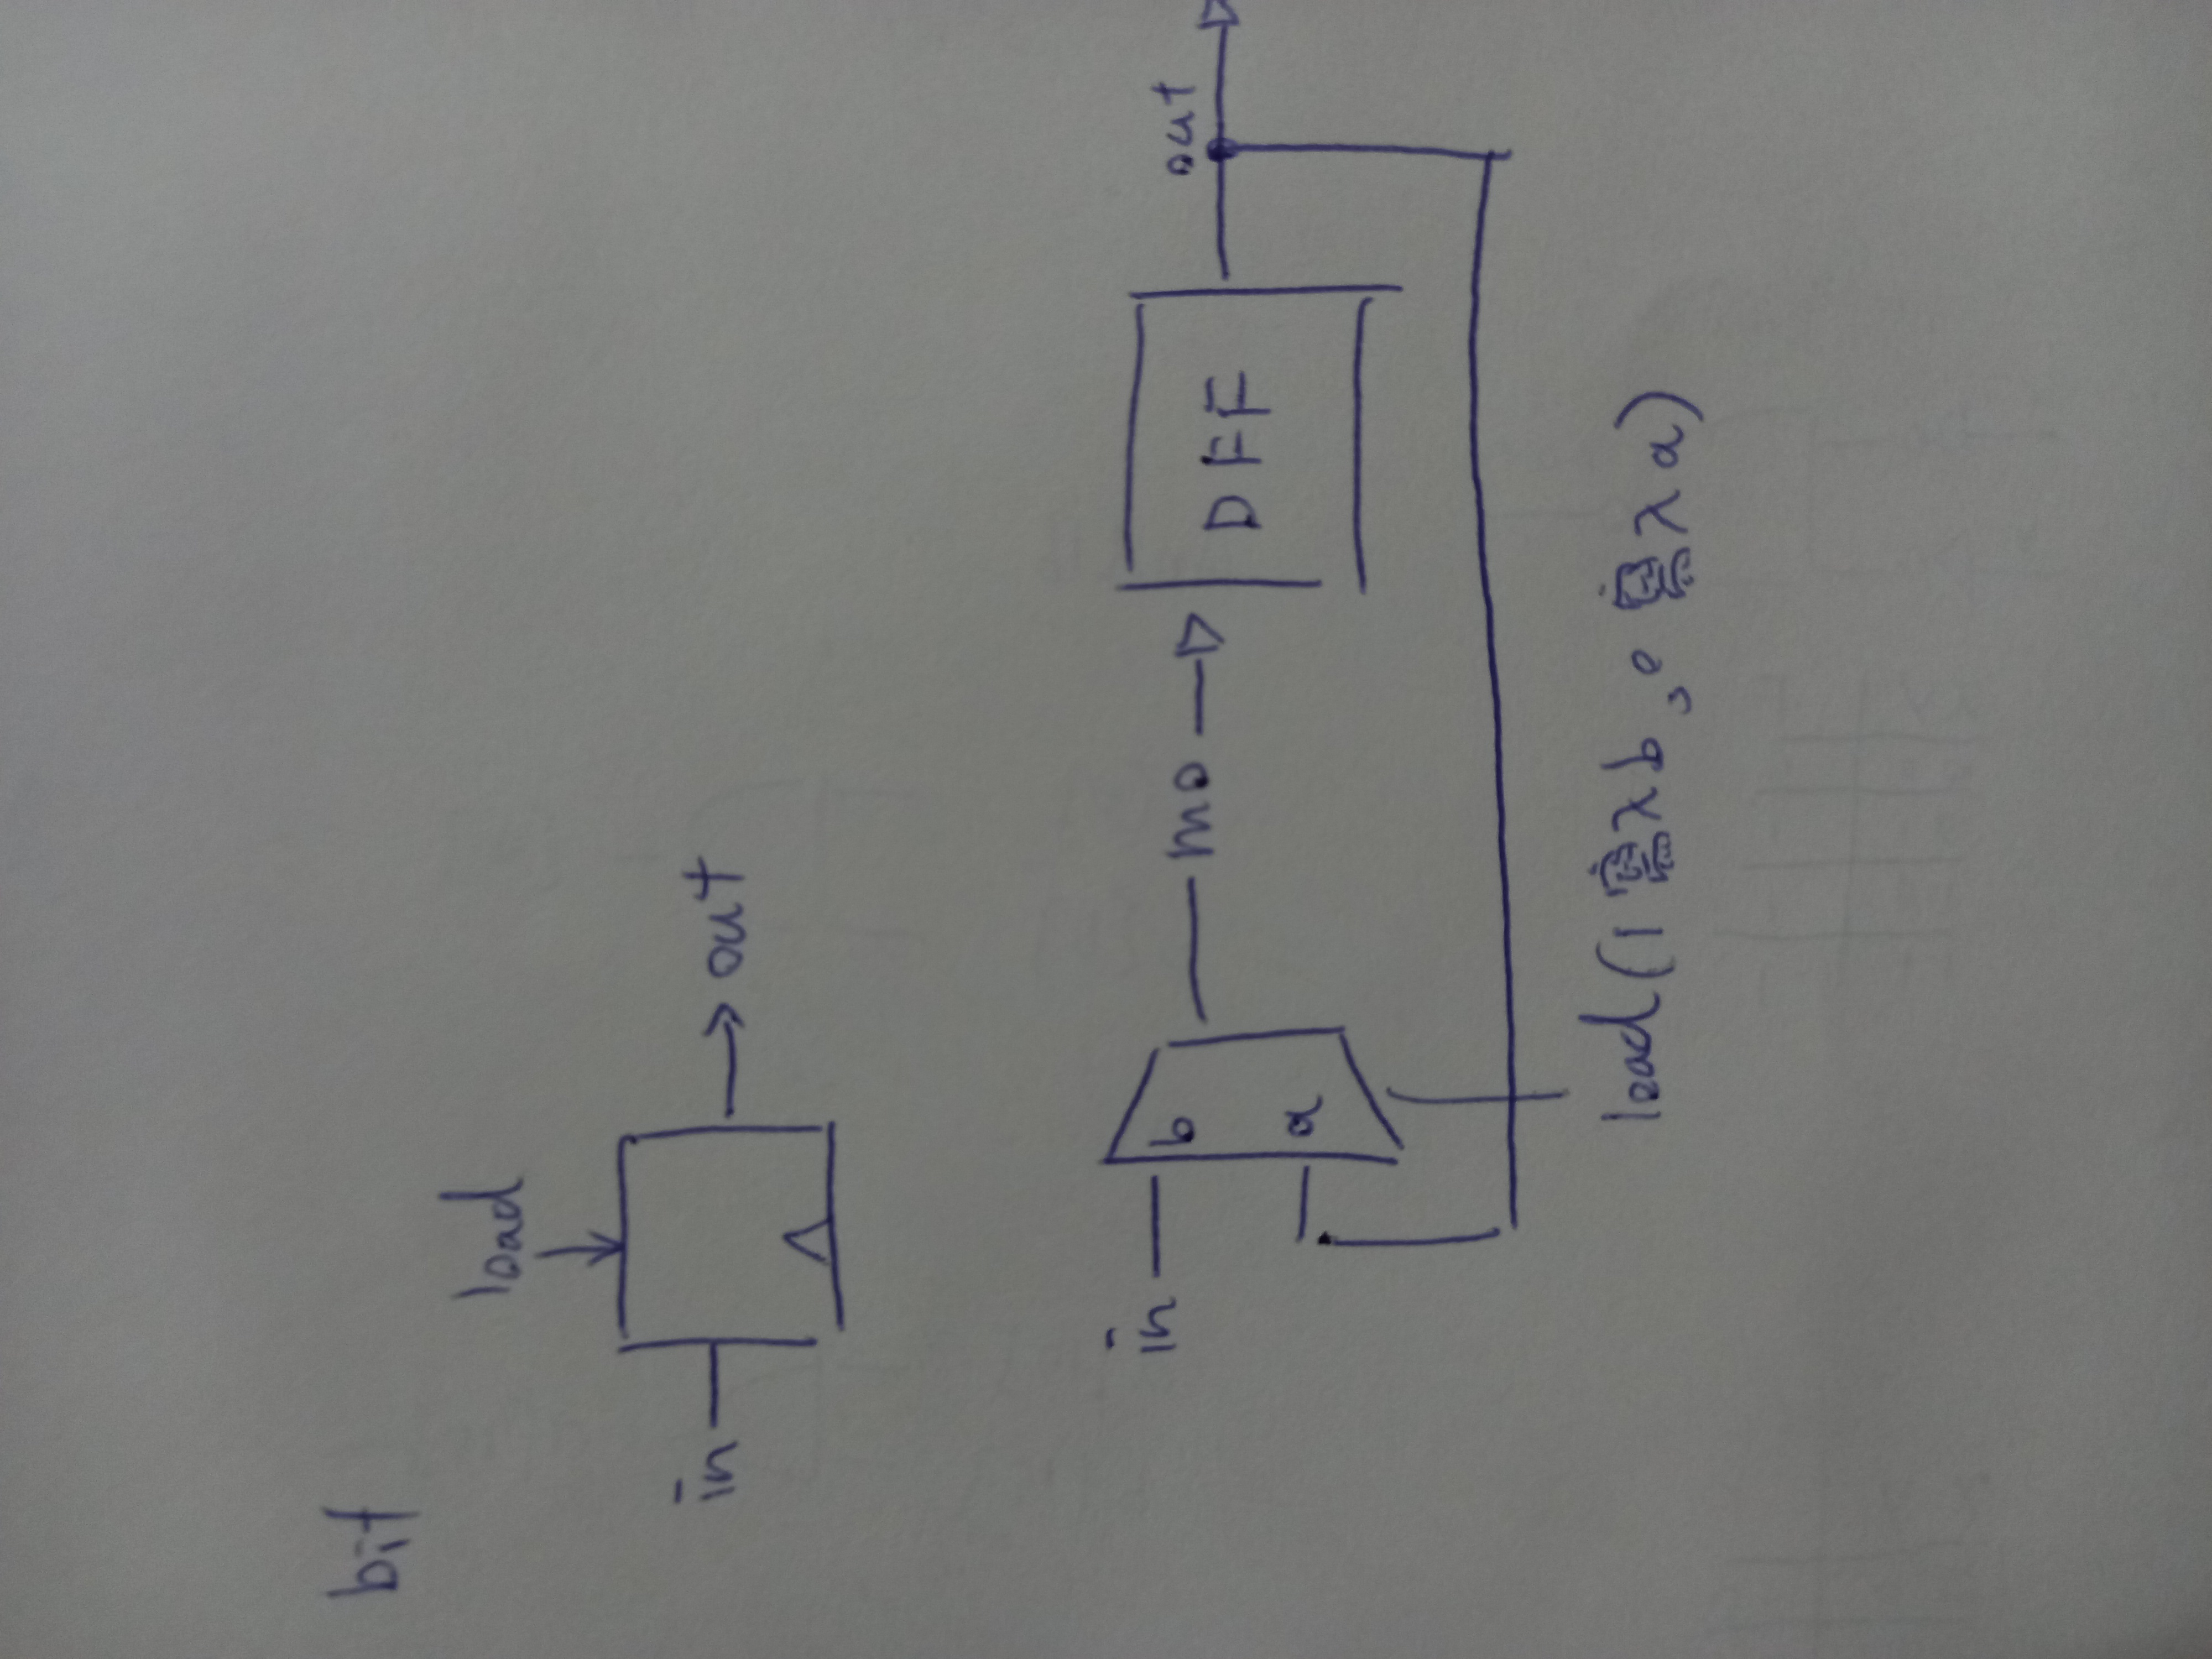 bit
load
in
out
in
b
mo
DFF
out
a
load (1 入 b, 0 入 a)